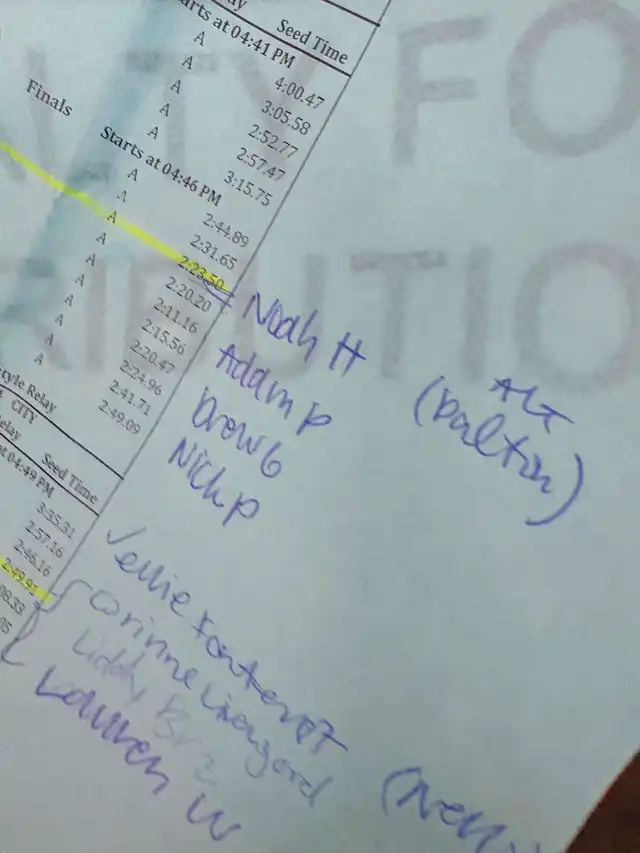 Seed Time
arts at 04:41 PM
A 4:00.47
A 3:05.58
A 2:52.77
A 2:57.47
A 3:15.75
Finals Starts at 04:46 PM
A 2:44.89
A 2:31.65
A 2:23.50
A 2:20.20
A 2:11.16
A 2:15.56
A 2:20.47
A 2:24.96
A 2:41.71
A 2:49.09
tyle Relay
CITY
elay Seed Time
at 04:49 PM
3:35.31
2:57.16
2:46.16
2:49.9
08.33
05
Noah H
Adam P
Drew G
Nick P
ALT
(Dalton)
Ellie
Corinne
Liddy
Lauren W
(Nell
NTY FO
RIBUTIO